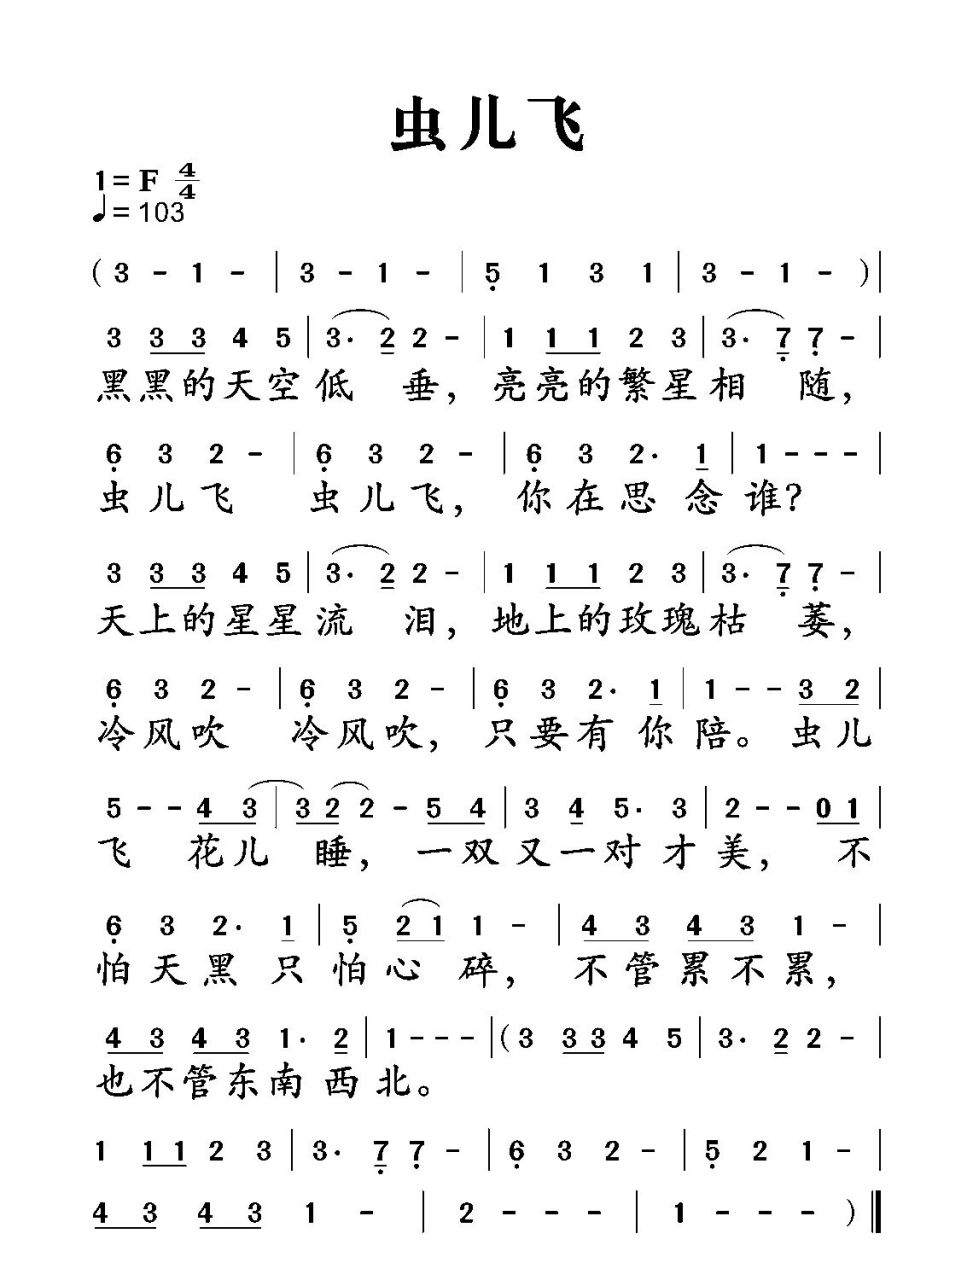 虫儿飞
1=F 4/4
♩=103
(3 - 1 - | 3 - 1 - | 5̣ 1 3 1 | 3 - 1 - )|
3 3 3 4 5 | 3· 2 2 - | 1 1 1 2 3 | 3· 7̣ 7̣ - |
黑黑的天空低 垂，亮亮的繁星相 随，
6̣ 3 2 - | 6̣ 3 2 - | 6̣ 3 2· 1 | 1 - - - |
虫儿飞 虫儿飞，你在思念谁？
3 3 3 4 5 | 3· 2 2 - | 1 1 1 2 3 | 3· 7̣ 7̣ - |
天上的星星流 泪，地上的玫瑰枯 萎，
6̣ 3 2 - | 6̣ 3 2 - | 6̣ 3 2· 1 | 1 - - 3 2 |
冷风吹 冷风吹，只要有你陪。虫儿
5 - - 4 3 | 3 2 2 - 5 4 | 3 4 5· 3 | 2 - - 0 1 |
飞 花儿 睡，一双又一对才美，不
6̣ 3 2· 1 | 5̣ 2 1 1 - | 4 3 4 3 1 - |
怕天黑只怕心碎，不管累不累，
4 3 4 3 1· 2 | 1 - - - |(3 3 3 4 5 | 3· 2 2 - |
也不管东南西北。
1 1 1 2 3 | 3· 7̣ 7̣ - | 6̣ 3 2 - | 5̣ 2 1 - |
4 3 4 3 1 - | 2 - - - | 1 - - - )‖